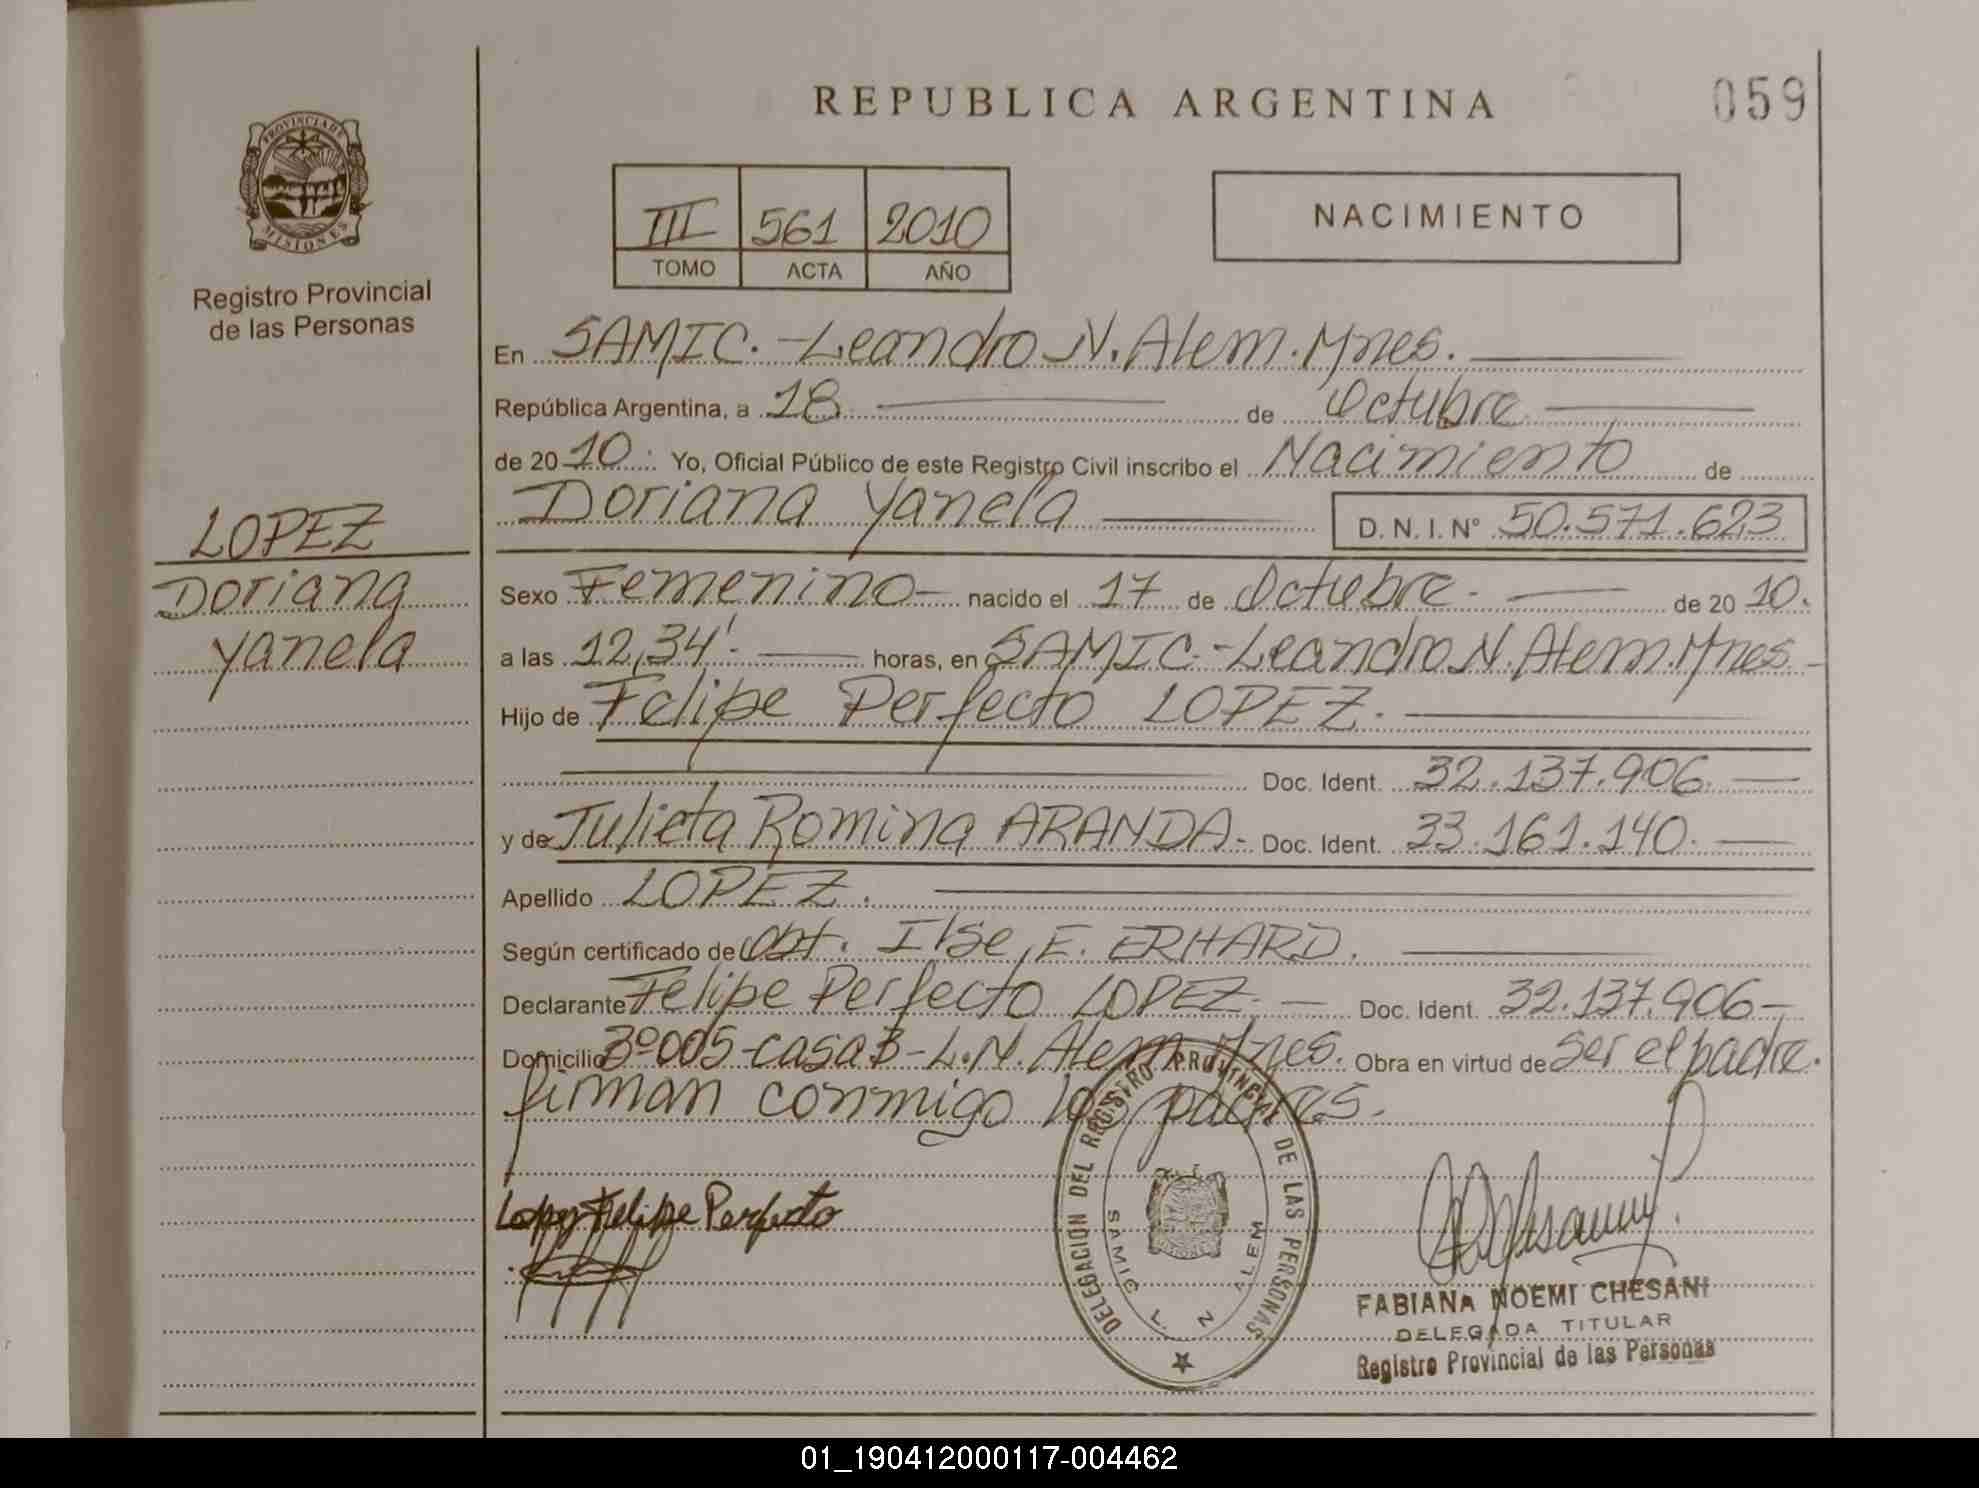 REPUBLICA ARGENTINA
059
PROVINCIA DE
MISIONES
Registro Provincial
de las Personas
III 561 2010
TOMO ACTA AÑO
NACIMIENTO
En SAMIC.-Leandro N. Alem. Mnes.
República Argentina, a 18 de Octubre
de 2010. Yo, Oficial Público de este Registro Civil inscribo el Nacimiento de
Doriana Yanela D.N.I. N° 50.571.623
LOPEZ
Doriana
Yanela
Sexo Femenino- nacido el 17 de Octubre. de 2010.
a las 12,34'. horas, en SAMIC.-Leandro N. Alem. Mnes.-
Hijo de Felipe Perfecto LOPEZ.
Doc. Ident. 32.137.906.
y de Julieta Romina ARANDA- Doc. Ident. 33.161.140.
Apellido LOPEZ.
Según certificado de Obt. Ilse E. ERHARD.
Declarante Felipe Perfecto LOPEZ. Doc. Ident. 32.137.906-
Domicilio Bº005-casa3-L.N. Alem Mnes. Obra en virtud de ser el padre.
firman conmigo los padres.
Lopez Felipe Perfecto
DELEGACION DEL REGISTRO PROVINCIAL DE LAS PERSONAS
SAMIC L. N ALEM
FABIANA NOEMI CHESANI
DELEGADA TITULAR
Registro Provincial de las Personas
01_190412000117-004462